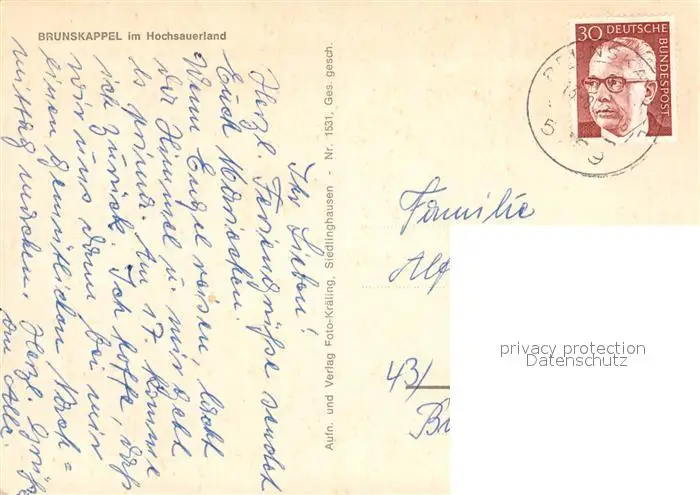 BRUNSKAPPEL im Hochsauerland
Ihr Lieben!
Herzl. Feriengrüße sendet
Euch Mariechen.
Wenn Engel reisen, lacht
der Himmel u. mir geht
es prima. Am 17. komme
ich zurück. Ich hoffe, daß
wir uns dann bei mir
einen gemütlichen Nach=
mittag machen. Herzl. Grüße
an alle.
Aufn. und Verlag Foto-Kräling, Siedlinghausen - Nr. 1531, Ges. gesch.
30 DEUTSCHE
BUNDESPOST
Familie
Alf
43/
privacy protection
Datenschutz